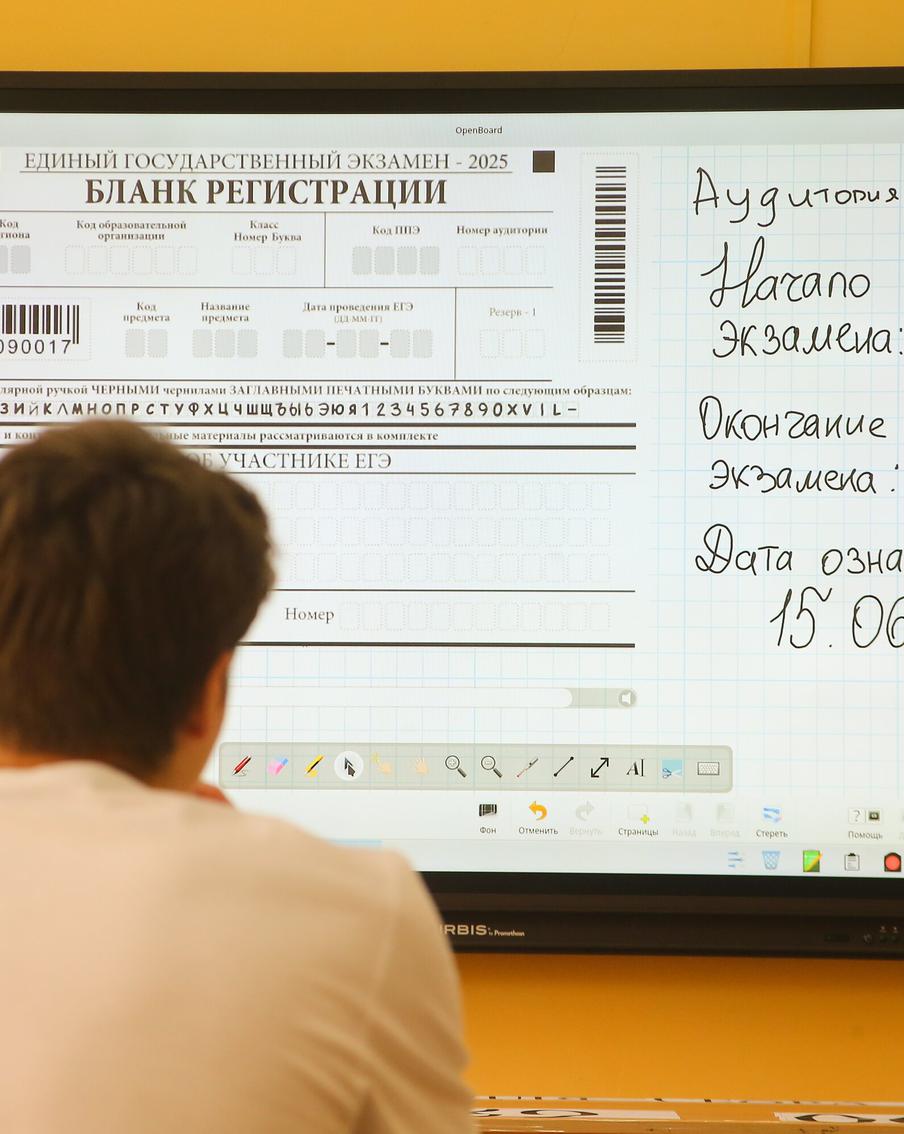 OpenBoard
ЕДИНЫЙ ГОСУДАРСТВЕННЫЙ ЭКЗАМЕН - 2025
БЛАНК РЕГИСТРАЦИИ
Код
Код образовательной организации
Класс
Номер Буква
Код ППЭ
Номер аудитории
090017
Код предмета
Название предмета
Дата проведения ЕГЭ
(ДД-ММ-ГГ)
Резерв - 1
ручкой ЧЕРНЫМИ чернилами ЗАГЛАВНЫМИ ПЕЧАТНЫМИ БУКВАМИ по следующим образцам:
ЗИЙКЛМНОПРСТУФХЦЧШЩЪЫЬЭЮЯ1234567890XVIL-
и материалы рассматриваются в комплекте
ОБ УЧАСТНИКЕ ЕГЭ
Номер
Аудитория
Начало
Экзамена:
Окончание
Экзамена:
Дата
15.06
Фон
Отменить
Вернуть
Страницы
Назад
Вперед
Стереть
Помощь
by Promethean